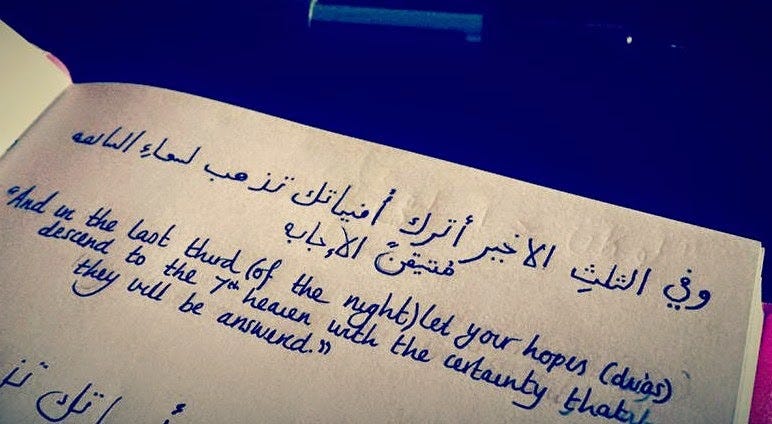 وفي الثلثِ الاخير أترك أمنياتك تذهب لسماءِ السابعه
مُتيقنً الإجابه
"And in the last third (of the night) let your hopes (duias)
descend to the 7th heaven with the certainty that
they will be answered."